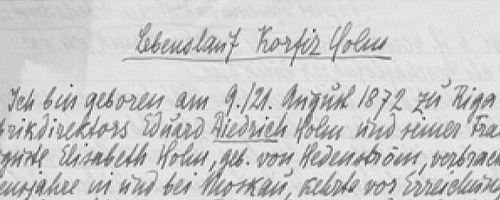 Lebenslauf Korfiz Holm
Ich bin geboren am 9./21. August 1872 zu Riga
brikdirektors Eduard Diedrich Holm und seiner Frau
guste Elisabeth Holm, geb. von Hedenström, verbrac
ensjahre in und bei Moskau, kehrte vor Erreichung